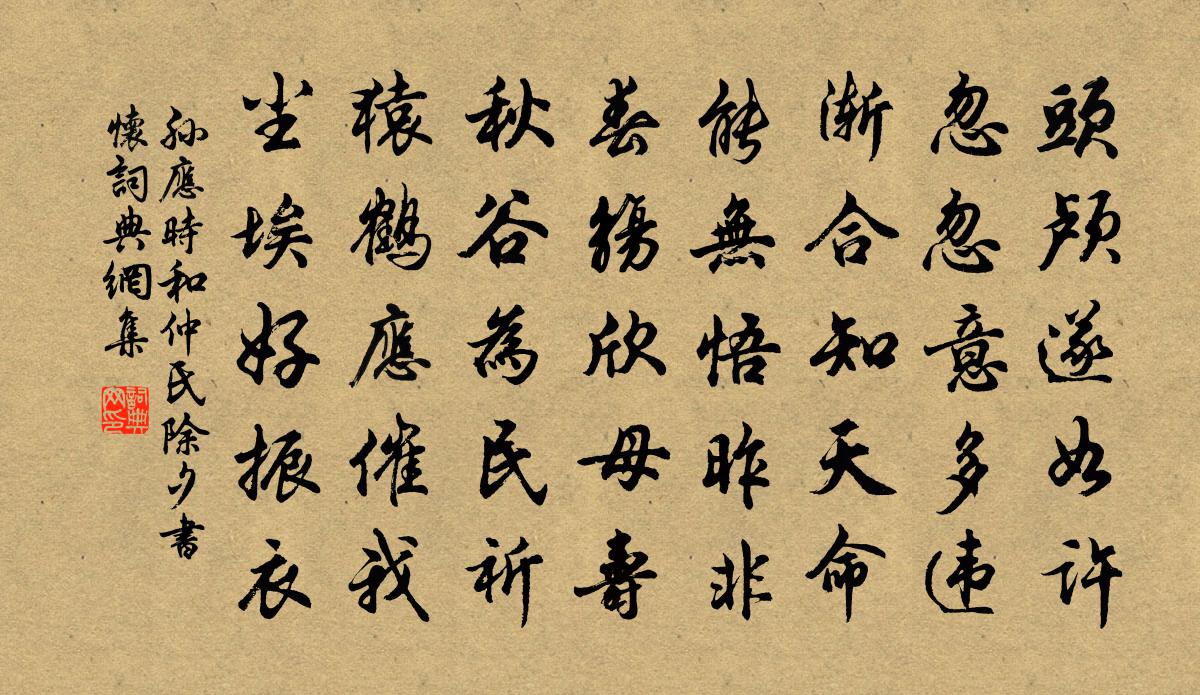 頭顱遂如許
忽忽意多違
漸合知天命
能無悟昨非
春觴欣母壽
秋谷為民祈
猿鶴應催我
尘埃好振衣
孙應時和仲民除夕書
懷詞典網集
詞典
网印